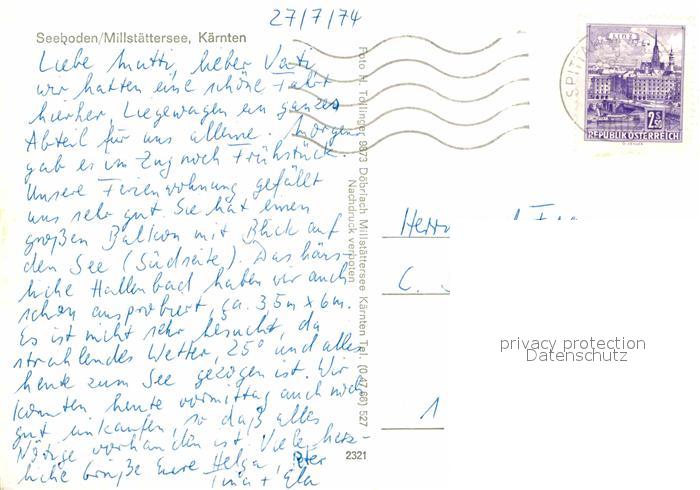 27/7/74
Seeboden/Millstättersee, Kärnten
Liebe Mutti, lieber Vati,
wir hatten eine schöne Fahrt
hierher, Liegewagen ein ganzes
Abteil für uns alleine. Morgens
gab es im Zug noch Frühstück.
Unsere Ferienwohnung gefällt
uns sehr gut. Sie hat einen
großen Balkon mit Blick auf
den See (Südseite). Das häus-
liche Hallenbad haben wir auch
schon ausprobiert, ca. 3,5m x 6m.
Es ist nicht sehr besucht, da
strahlendes Wetter, 25° und alles
heute zum See gezogen ist. Wir
konnten heute vormittag auch noch
gut einkaufen, so daß alles
Nötige vorhanden ist. Viele herz-
liche Grüße Eure Helga, Peter
Tina + Ela
Foto H. Tollinger 9873 Döbriach Millstättersee Kärnten Tel. (0 47 66) 527
Nachdruck verboten
2321
LINZ
2.50
S
REPUBLIK ÖSTERREICH
SPITTAL
Herrn
C.
1
privacy protection
Datenschutz